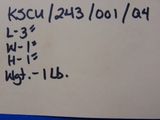 KSCU/243/001/Q4
L-3"
W-1"
H-1"
Wgt.-1Lb.